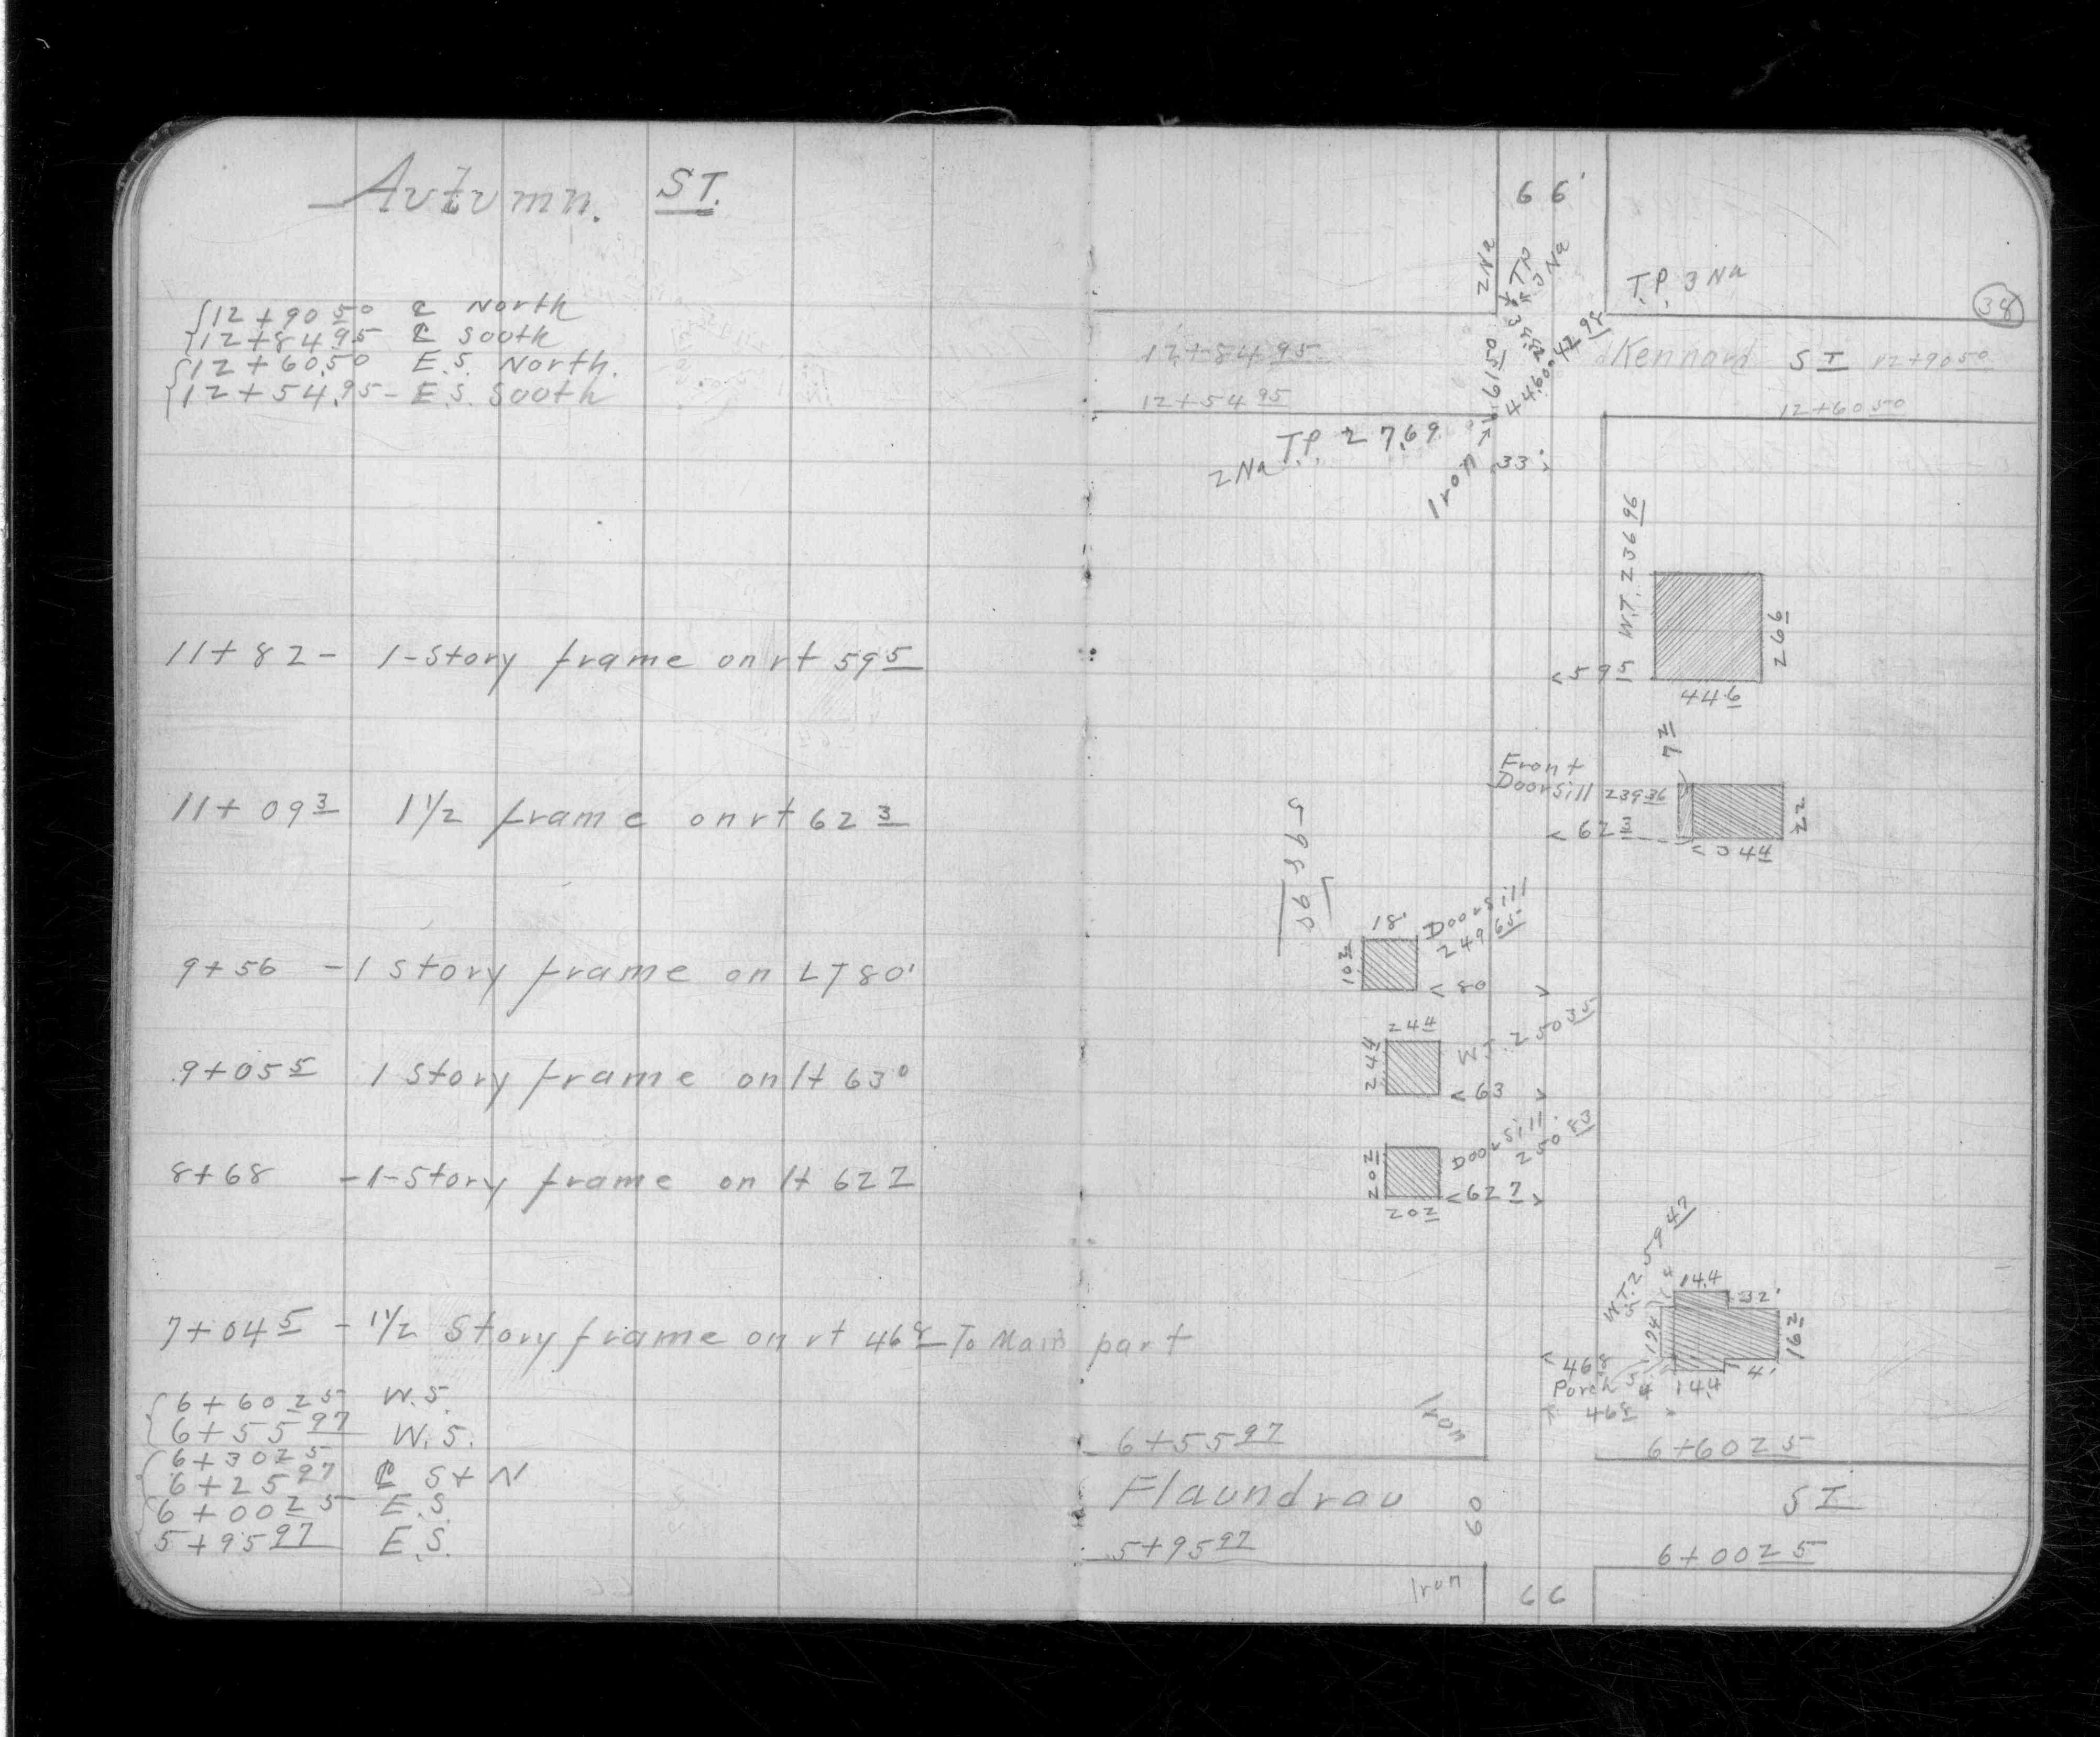 Autumn. ST.
12+90 50 ℄ North
12+84 95 ℄ South
12+60.50 E.S. North.
12+54.95 - E.S. South
11+82 - 1-Story frame on rt 59 5
11+09 3 1 1/2 frame on rt 62 3
9+56 - 1 Story frame on LT 80'
9+05 5 1 Story frame on lt 63 0
8+68 - 1-Story frame on lt 62 7
7+04 5 - 1 1/2 Story frame on rt 46 8 To Main part
6+60 25 W.S.
6+55 97 W.S.
6+30 25
6+25 97 ℄ S+N
6+00 25 E.S.
5+95 97 E.S.
66'
2 Na
T.P. 3 Na
38
12+84 95
Kennard ST 12+90 50
12+54 95
12+60 50
61 50
42 98
T.P. 27.69
2 Na
Iron
33'
W.T. 236 96
26 6
< 59 5
44 6
7 2
Front
Doorsill 239 36
22
< 62 3
< 34 4
695 95
18'
Doorsill
249 65
10 3
< 80 >
24 4
W.T. 250 35
24 4
< 63 >
Doorsill
250 33
20 2
< 62 7 >
20 2
W.T. 259 47
14.4
32'
19 4
16 2
< 46 8
Porch
4'
14.4
46 8
Iron
6+55 97
6+60 25
Flaundrau 60 ST
5+95 97
6+00 25
Iron
66